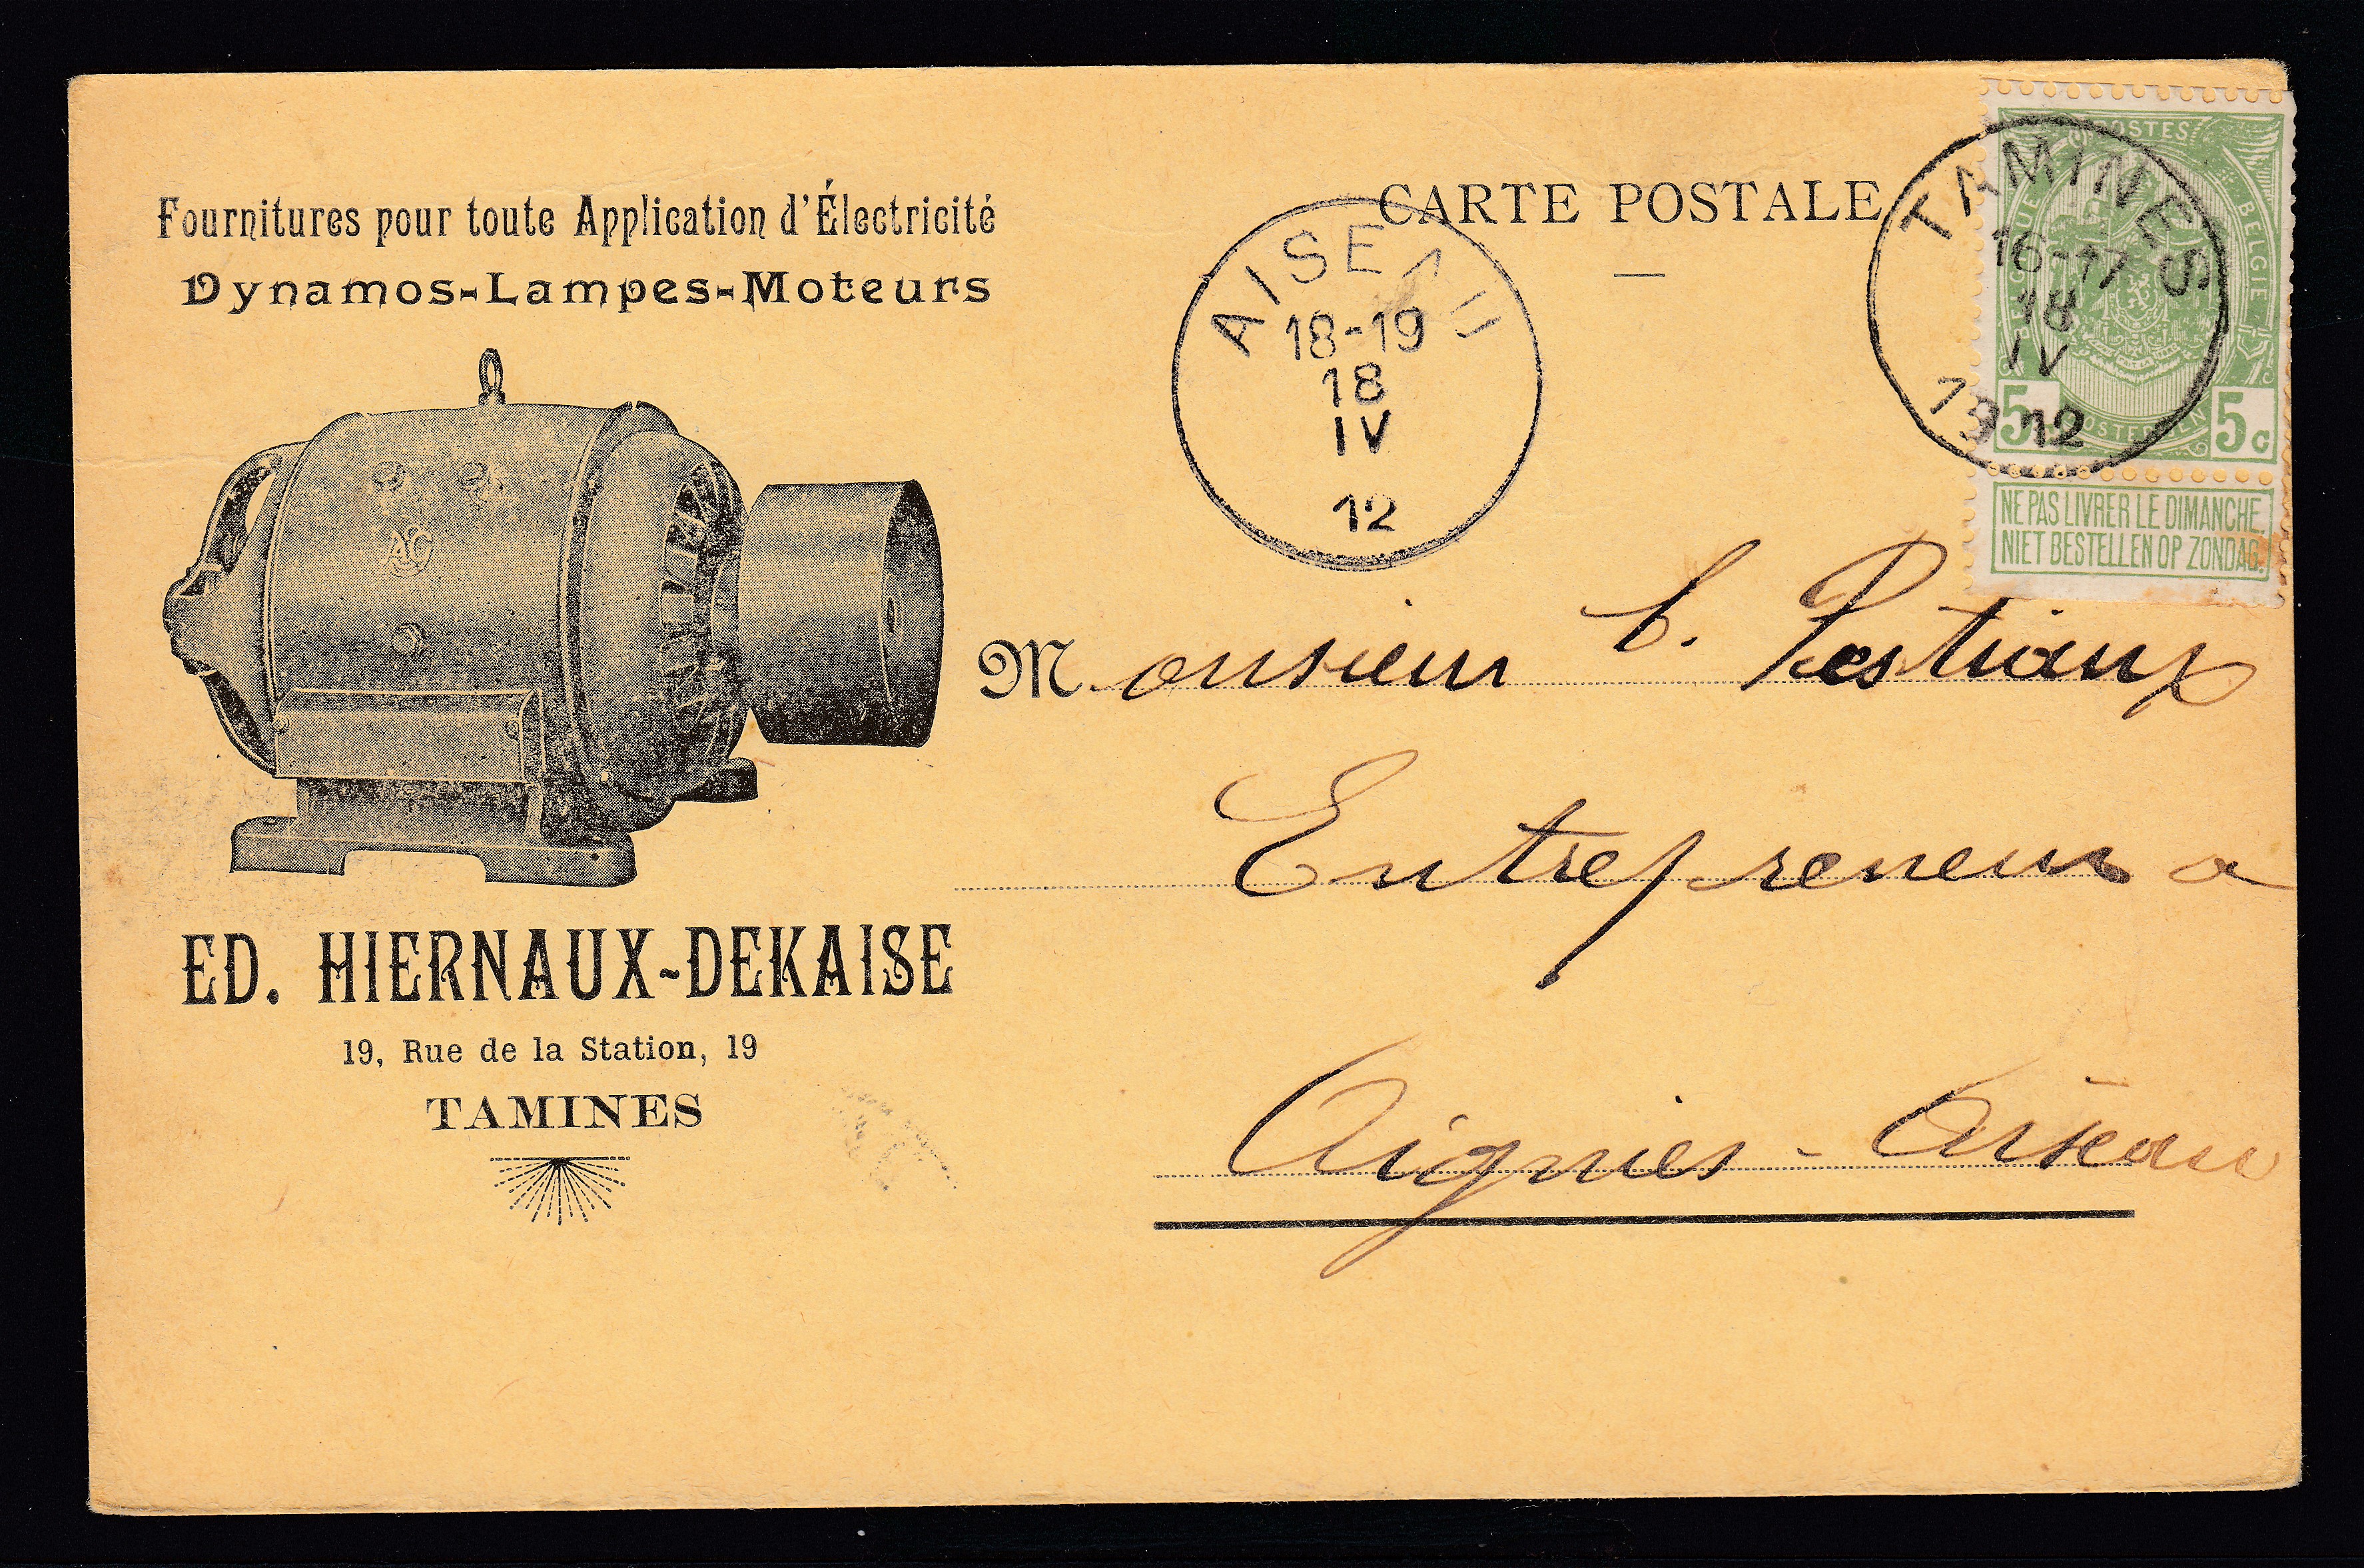 Fournitures pour toute Application d'Électricité
Dynamos-Lampes-Moteurs
ED. HIERNAUX-DEKAISE
19, Rue de la Station, 19
TAMINES
CARTE POSTALE
AISEAU
18-19
18
IV
12
TAMINES
16-17
18
IV
1912
POSTES
BELGIQUE
BELGIE
5 5c
NE PAS LIVRER LE DIMANCHE.
NIET BESTELLEN OP ZONDAG.
Monsieur
Entrepreneur a
Oignies - Aiseau